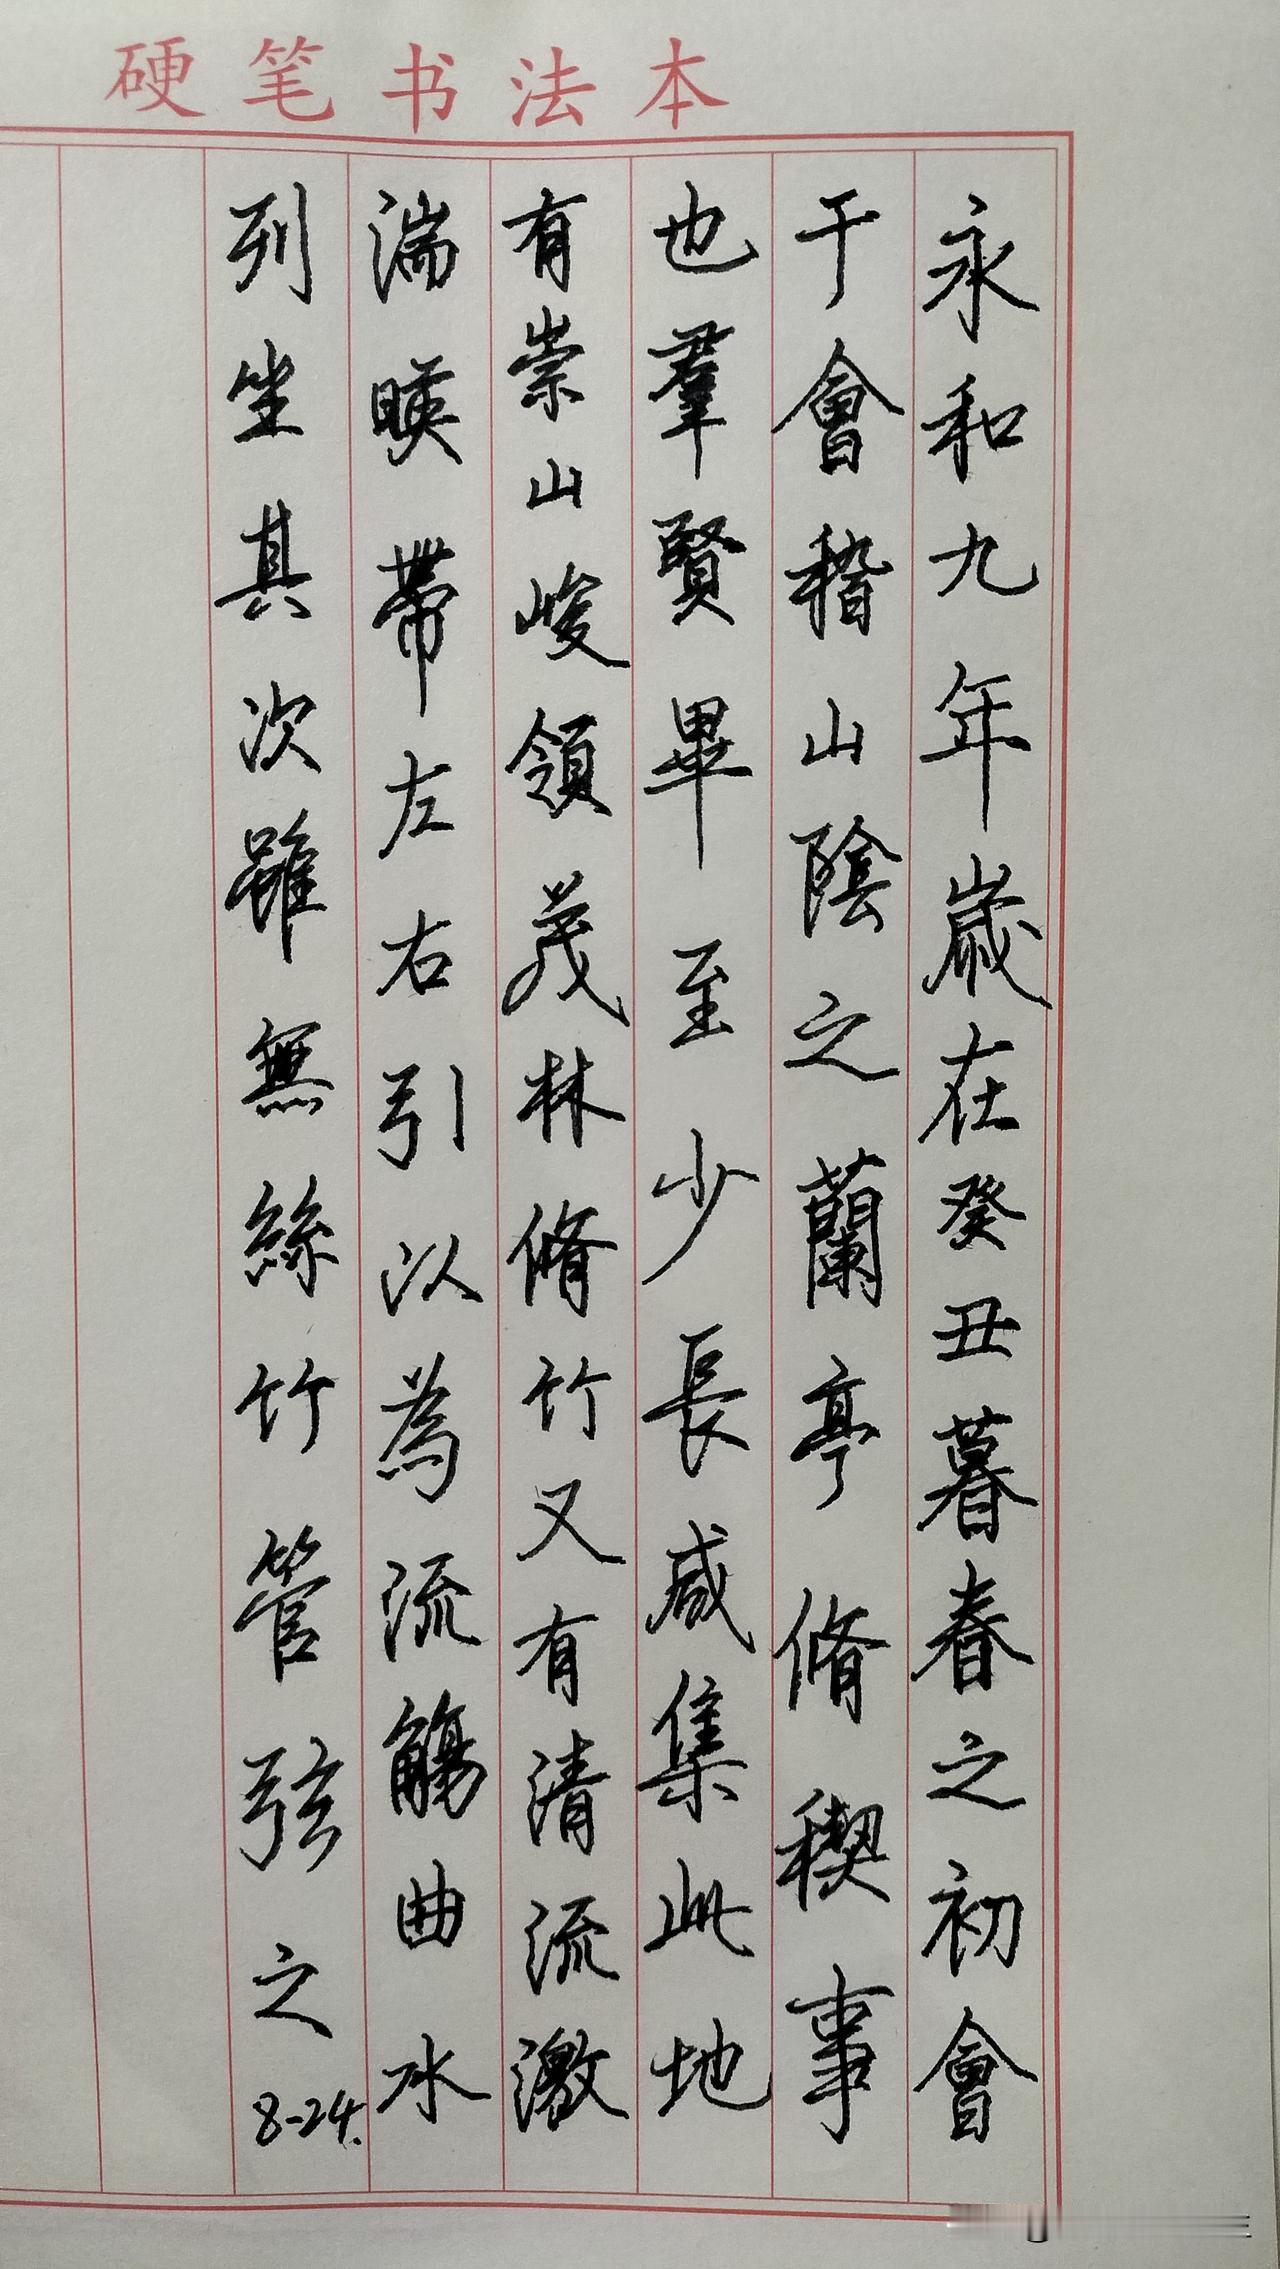 硬笔书法本
永和九年歲在癸丑暮春之初會
于會稽山陰之蘭亭脩稧事
也羣賢畢至少長咸集此地
有崇山峻領茂林脩竹又有清流激
湍暎帶左右引以為流觴曲水
列坐其次雖無絲竹管弦之
8-24.